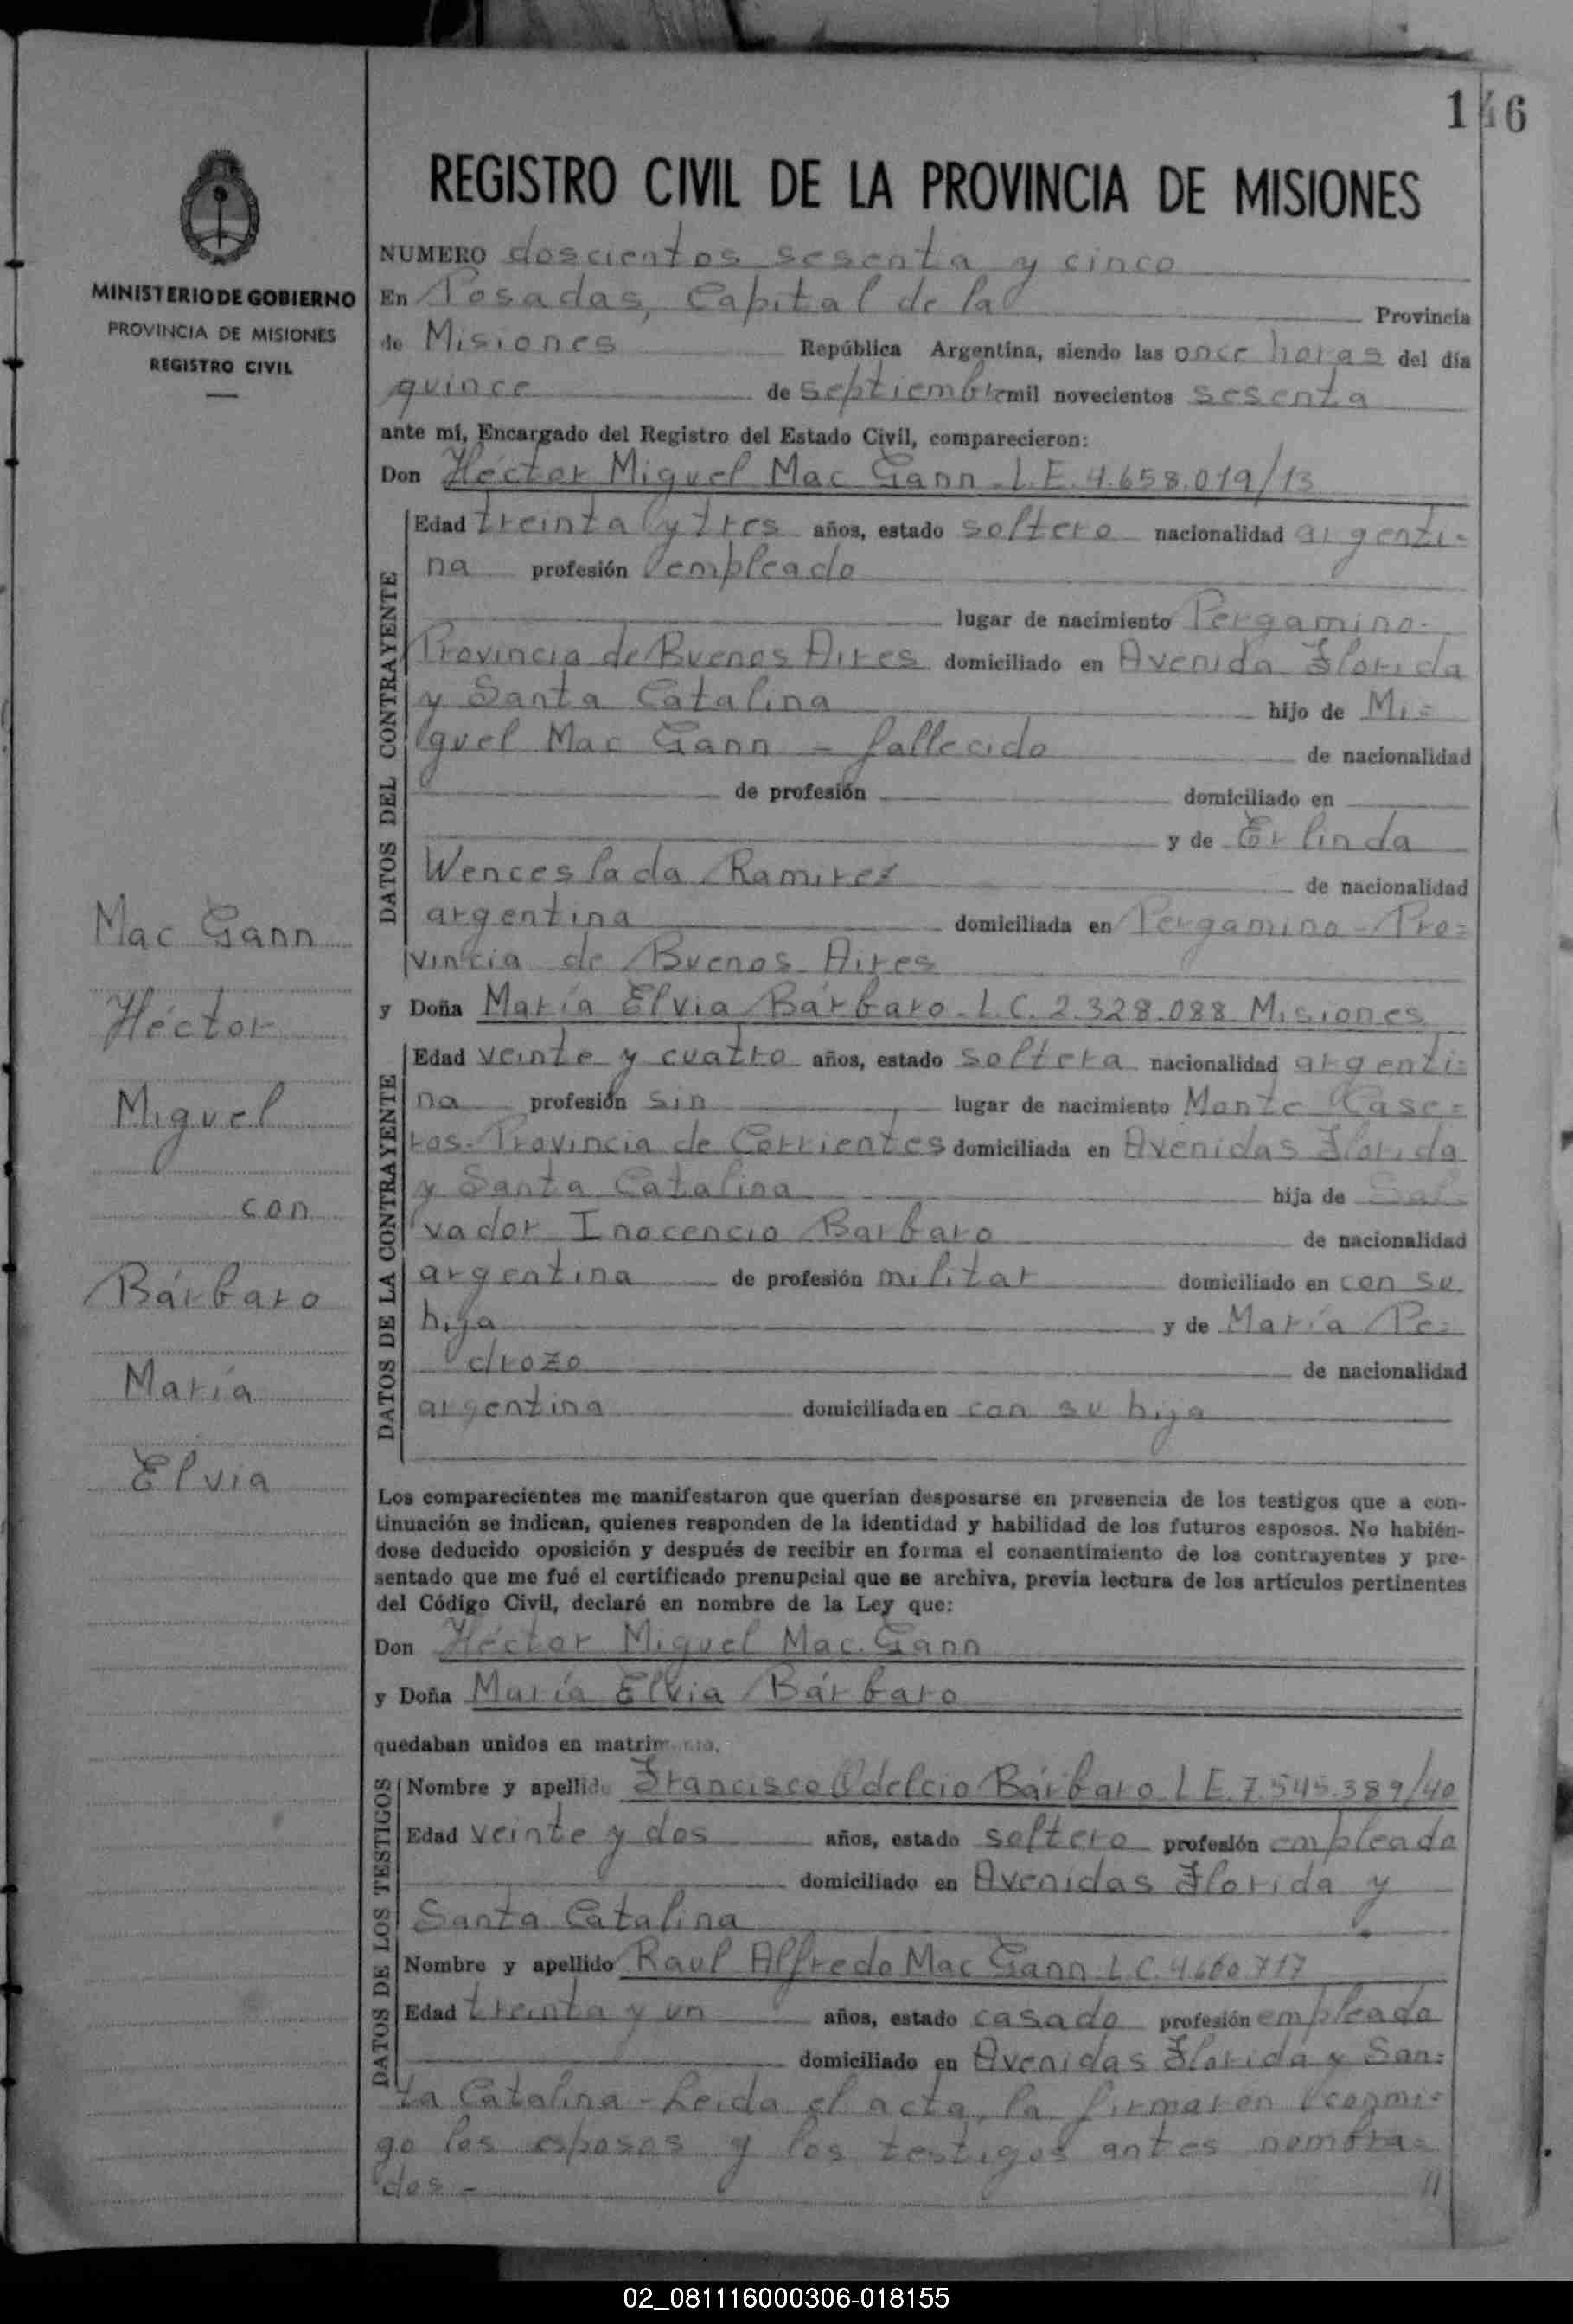 146
REGISTRO CIVIL DE LA PROVINCIA DE MISIONES
MINISTERIO DE GOBIERNO
PROVINCIA DE MISIONES
REGISTRO CIVIL
Mac Gann
Héctor
Miguel
con
Bárbaro
María
Elvia
NUMERO doscientos sesenta y cinco
En Posadas, Capital de la Provincia
de Misiones República Argentina, siendo las once horas del día
quince de septiembre mil novecientos sesenta
ante mí, Encargado del Registro del Estado Civil, comparecieron:
Don Héctor Miguel Mac Gann L.E. 4.658.019/13
DATOS DEL CONTRAYENTE
Edad treinta y tres años, estado soltero nacionalidad argenti=
na profesión empleado
lugar de nacimiento Pergamino-
Provincia de Buenos Aires domiciliado en Avenida Florida
y Santa Catalina hijo de Mi=
guel Mac Gann - fallecido de nacionalidad
de profesión domiciliado en
y de Erlinda
Wenceslada Ramirez de nacionalidad
argentina domiciliada en Pergamino - Pro=
vincia de Buenos Aires
y Doña María Elvia Bárbaro - L.C. 2.328.088 Misiones
DATOS DE LA CONTRAYENTE
Edad veinte y cuatro años, estado soltera nacionalidad argenti=
na profesión sin lugar de nacimiento Monte Case=
ros - Provincia de Corrientes domiciliada en Avenidas Florida
y Santa Catalina hija de Sal
vador Inocencio Barbaro de nacionalidad
argentina de profesión militar domiciliado en con su
hija y de María Pe=
drozo de nacionalidad
argentina domiciliada en con su hija
Los comparecientes me manifestaron que querían desposarse en presencia de los testigos que a con-
tinuación se indican, quienes responden de la identidad y habilidad de los futuros esposos. No habién-
dose deducido oposición y después de recibir en forma el consentimiento de los contrayentes y pre-
sentado que me fué el certificado prenupcial que se archiva, previa lectura de los artículos pertinentes
del Código Civil, declaré en nombre de la Ley que:
Don Héctor Miguel Mac Gann
y Doña María Elvia Bárbaro
quedaban unidos en matrimonio.
DATOS DE LOS TESTIGOS
Nombre y apellido Francisco Odelcio Bárbaro L E. 7.545.389/40
Edad veinte y dos años, estado soltero profesión empleado
domiciliado en Avenidas Florida y
Santa Catalina
Nombre y apellido Raul Alfredo Mac Gann L.C. 4.660.717
Edad treinta y un años, estado casado profesión empleado
domiciliado en Avenidas Florida y San=
ta Catalina - Leida el acta, la firmaron conmi=
go los esposos y los testigos antes nombra=
dos - //
02_081116000306-018155